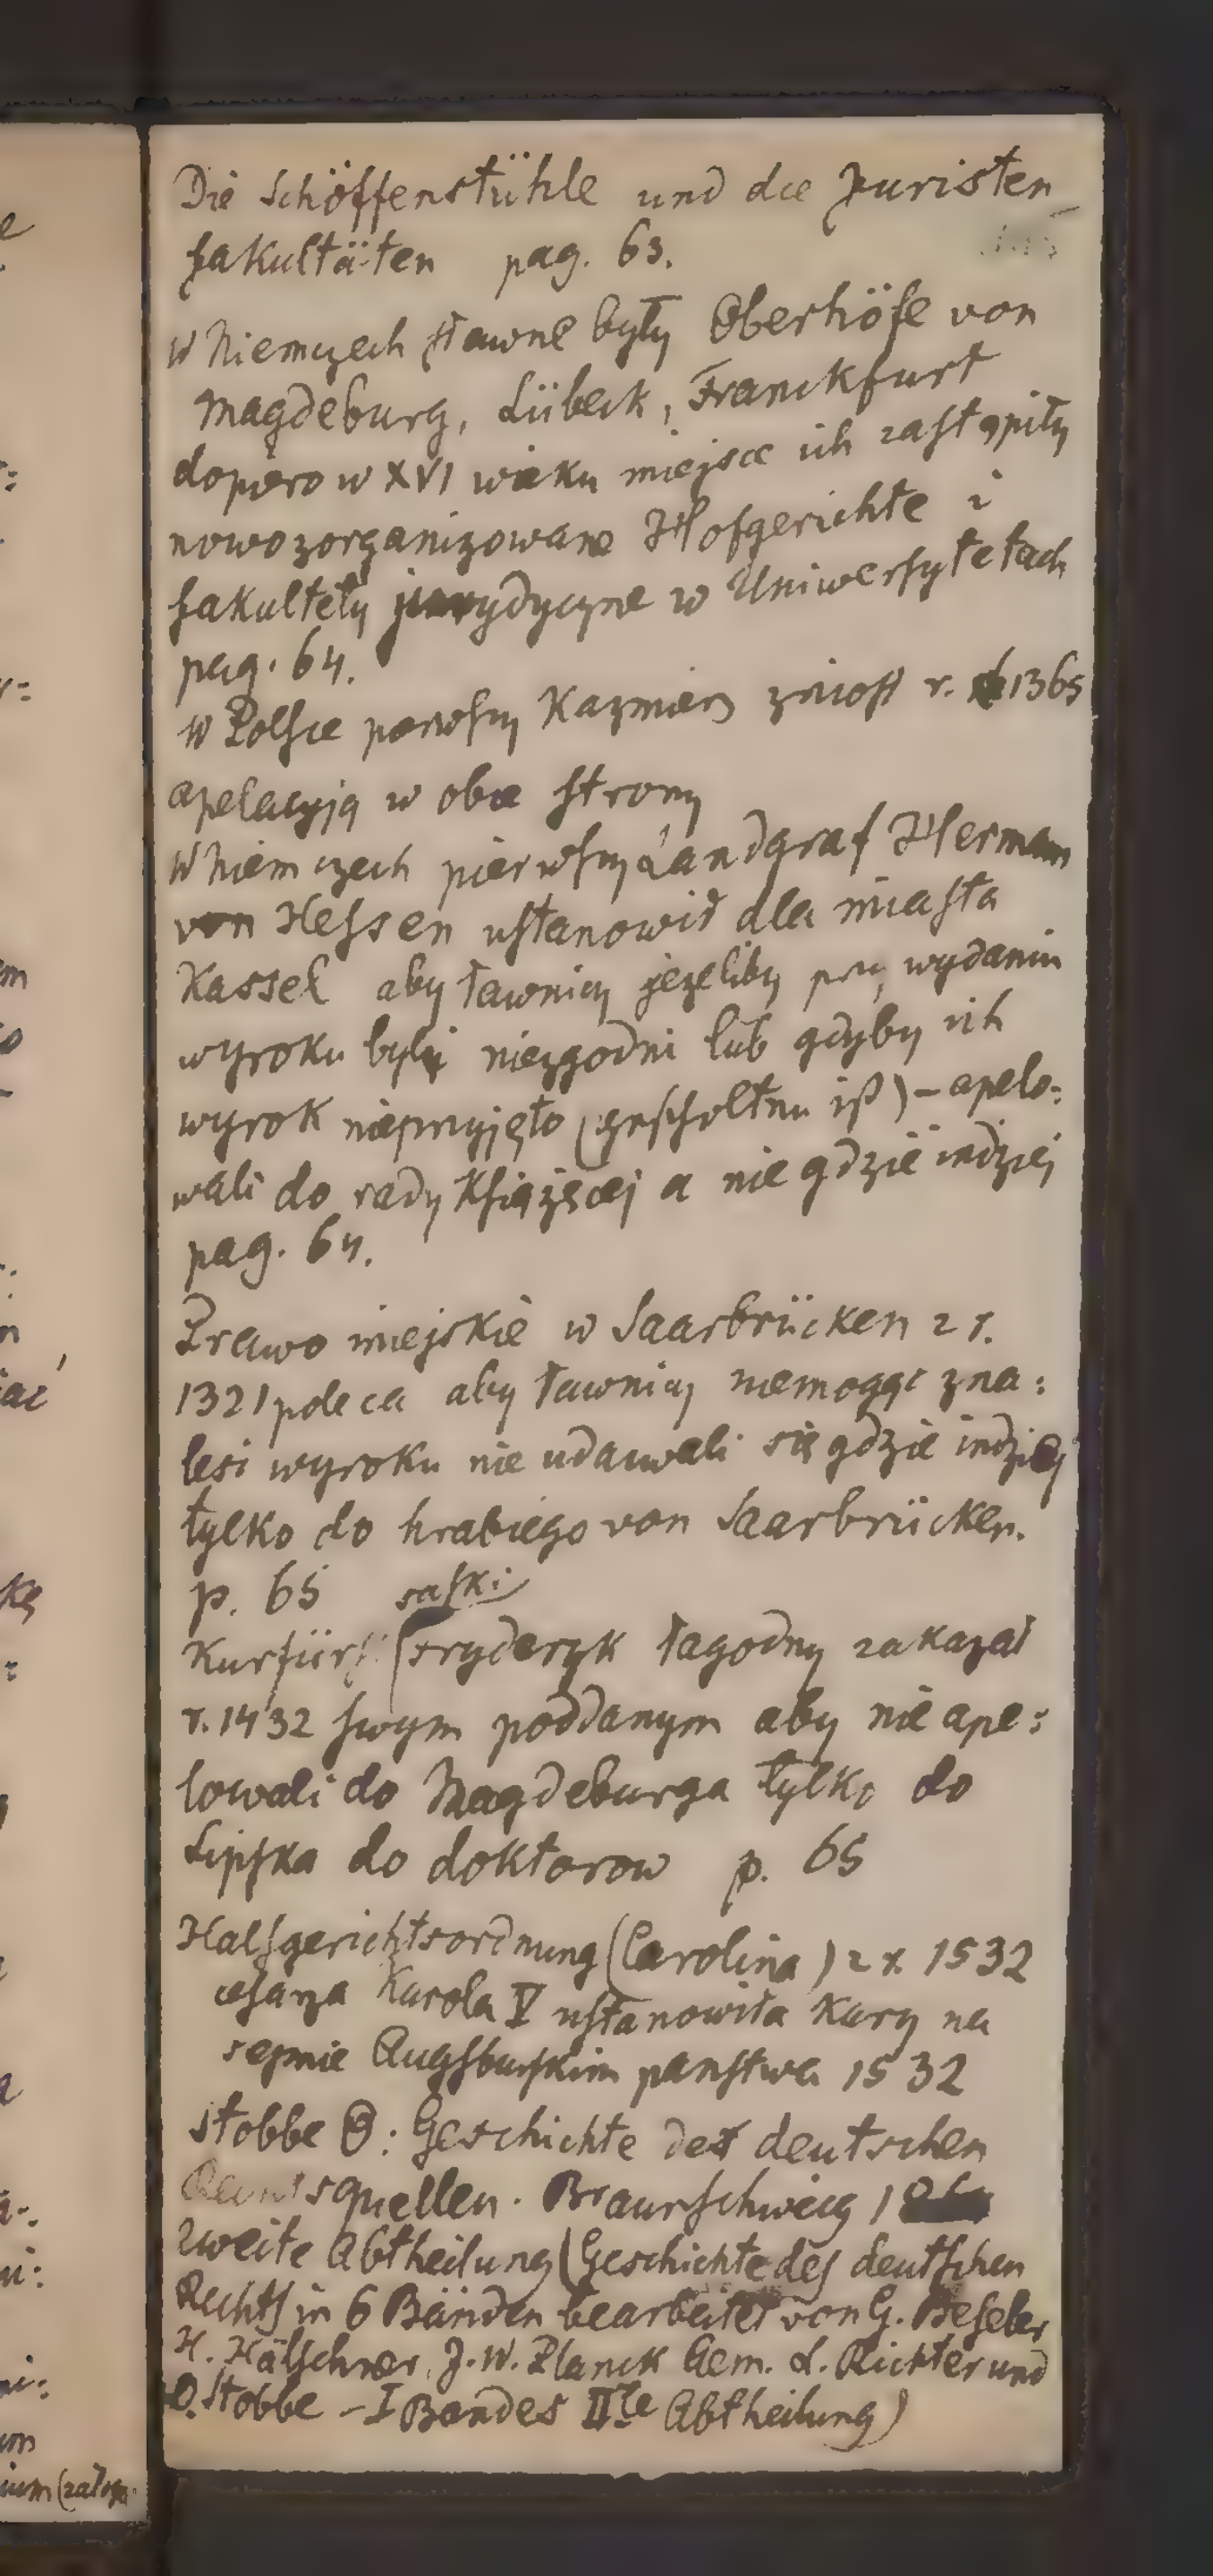 Die Schöffenstühle und die Juristen
fakultäten pag. 63.
w Niemczech sławne były Oberhöfe von
Magdeburg, Lübeck, Franckfurt
dopiero w XVI wieku miejsce ich zastąpiły
nowozorganizowane Hofgerichte i
fakultety jurydyczne w Uniwersytetach
pag. 64.
w Polsce pierwszy Kazmierz zniosł r. 1365
apelacyją w obce strony
W Niemczech pierwszy Landgraf Herman
von Hessen ustanowił dla miasta
Kassel aby ławnicy jezeliby przy wydaniu
wyroku byli niezgodni lub gdyby ich
wyrok nieprzyjęto (gescholten ist) – apelo:
wali do rady Książęcej a nie gdzie indziej
pag. 64.
Prawo miejskie w Saarbrücken z r.
1321 poleca aby ławnicy niemogąc zna:
lesi wyroku nie udawali się gdzie indziej
tylko do hrabiego von Saarbrücken.
p. 65 saski
Kurfürst Fryderyk łagodny zakazał
r. 1432 swym poddanym aby nie ape:
lowali do Magdeburga tylko do
Lipska do doktorow p. 65
Halsgerichtsordnung (Carolina) z r. 1532
cesarza Karola V ustanowiła Kary na
sejmie Augsburskim panstwa 1532
Stobbe O: Geschichte der deutschen
Rechtsquellen. Braunschweig
zweite Abtheilung (Geschichte des deutschen
Rechts in 6 Bänden bearbeitet von G. Beseler
H. Hälschner, J. W. Planck Aem. L. Richter und
O. Stobbe – I Bandes IIte Abtheilung)